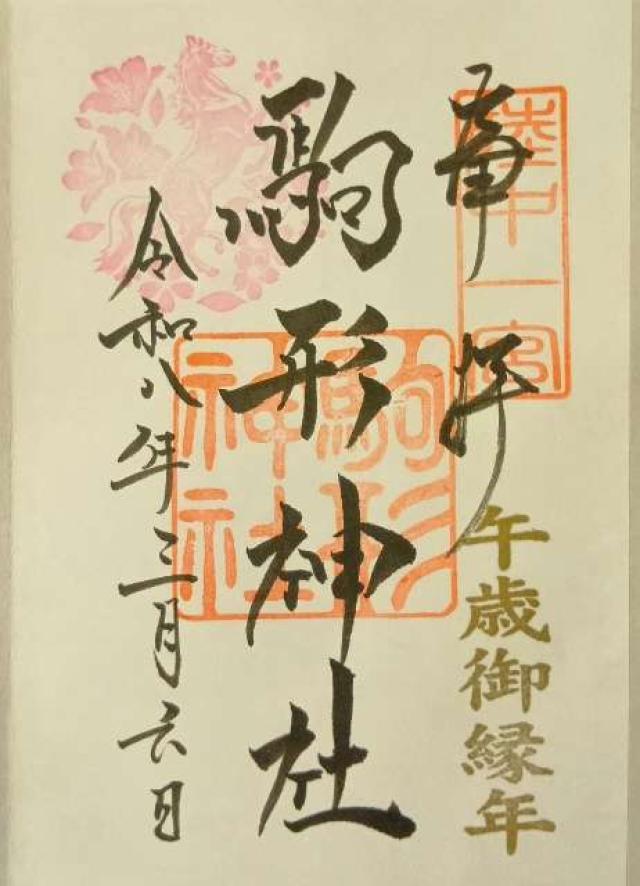 奉拝
陸中一宮
午歳御縁年
駒形神社
駒形
神社
令和八年三月六日